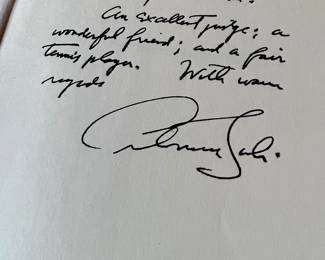 An excellent judge; a
wonderful friend; and a fair
tennis player. With warm
regards